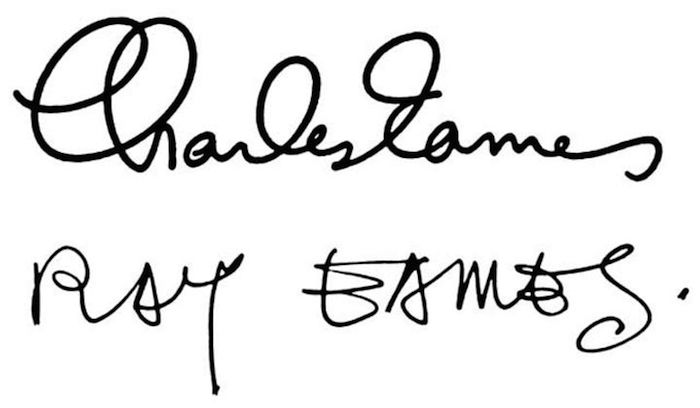 Charles Eames
RAY EAMES.